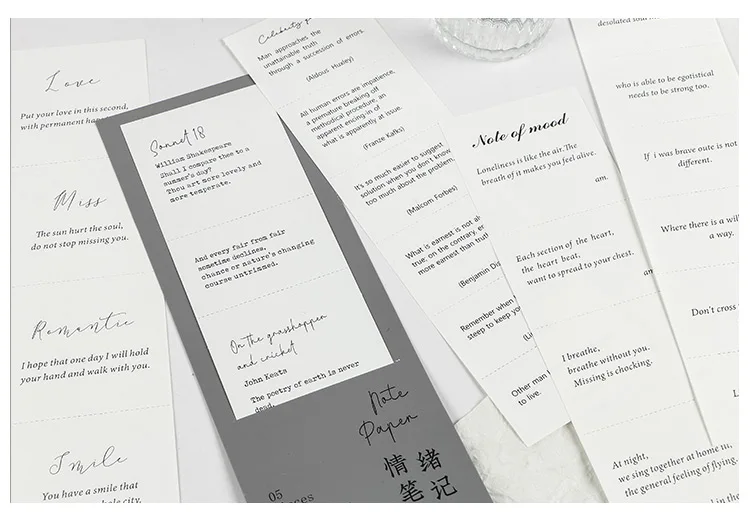 Love
Put your love in this second,
with permanent
Miss
The sun hurt the soul,
do not stop missing you.
Romantic
I hope that one day I will hold
your hand and walk with you.
Smile
You have a smile that
city,
Sonnet 18
William Shakespeare
Shall I compare thee to a
summer's day?
Thou art more lovely and
more temperate.
And every fair from fair
sometime declines,
chance or nature's changing
course untrimmed.
On the grasshopper
and cricket
John Keats
The poetry of earth is never
dead.
Note
Paper
情绪
笔记
05
Celebrity
Man approaches the
unattainable truth
through a succession of errors.
(Aldous Huxley)
All human errors are impatience,
a premature breaking off
methodical procedure, an
apparent encing-in of
what is apparently at issue.
(Franze Kafks)
It's so much easier to suggest
solution when you don't know
too much about the problem.
(Malcom Forbes)
What is earnest is not
true; on the contrary,
more earnest than
(Benjamin
Remember when
steep to keep
Other man
to live.
Note of mood
Loneliness is like the air.The
breath of it makes you feel alive.
am.
Each section of the heart,
the heart beat,
want to spread to your chest.
I breathe,
breathe without you.
Missing is chocking.
At night,
we sing together at home
the general feeling of flying.
desolated
who is able to be egotistical
needs to be strong too.
If i was brave oute is not
different.
Where there is a
a way.
Don't cross